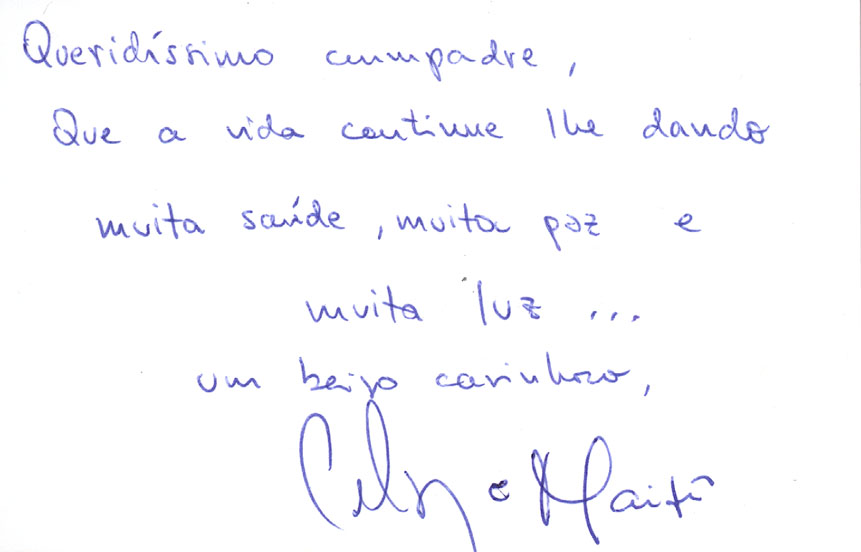 Queridíssimo cumpadre,
Que a vida continue lhe dando
muita saúde, muita paz e
muita luz ...
um beijo carinhoso,
e Maitê